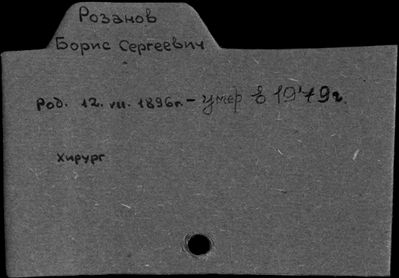 Розанов
Борис Сергеевич
Род. 12. VII. 1896 г. – умер в 1979 г.
хирург